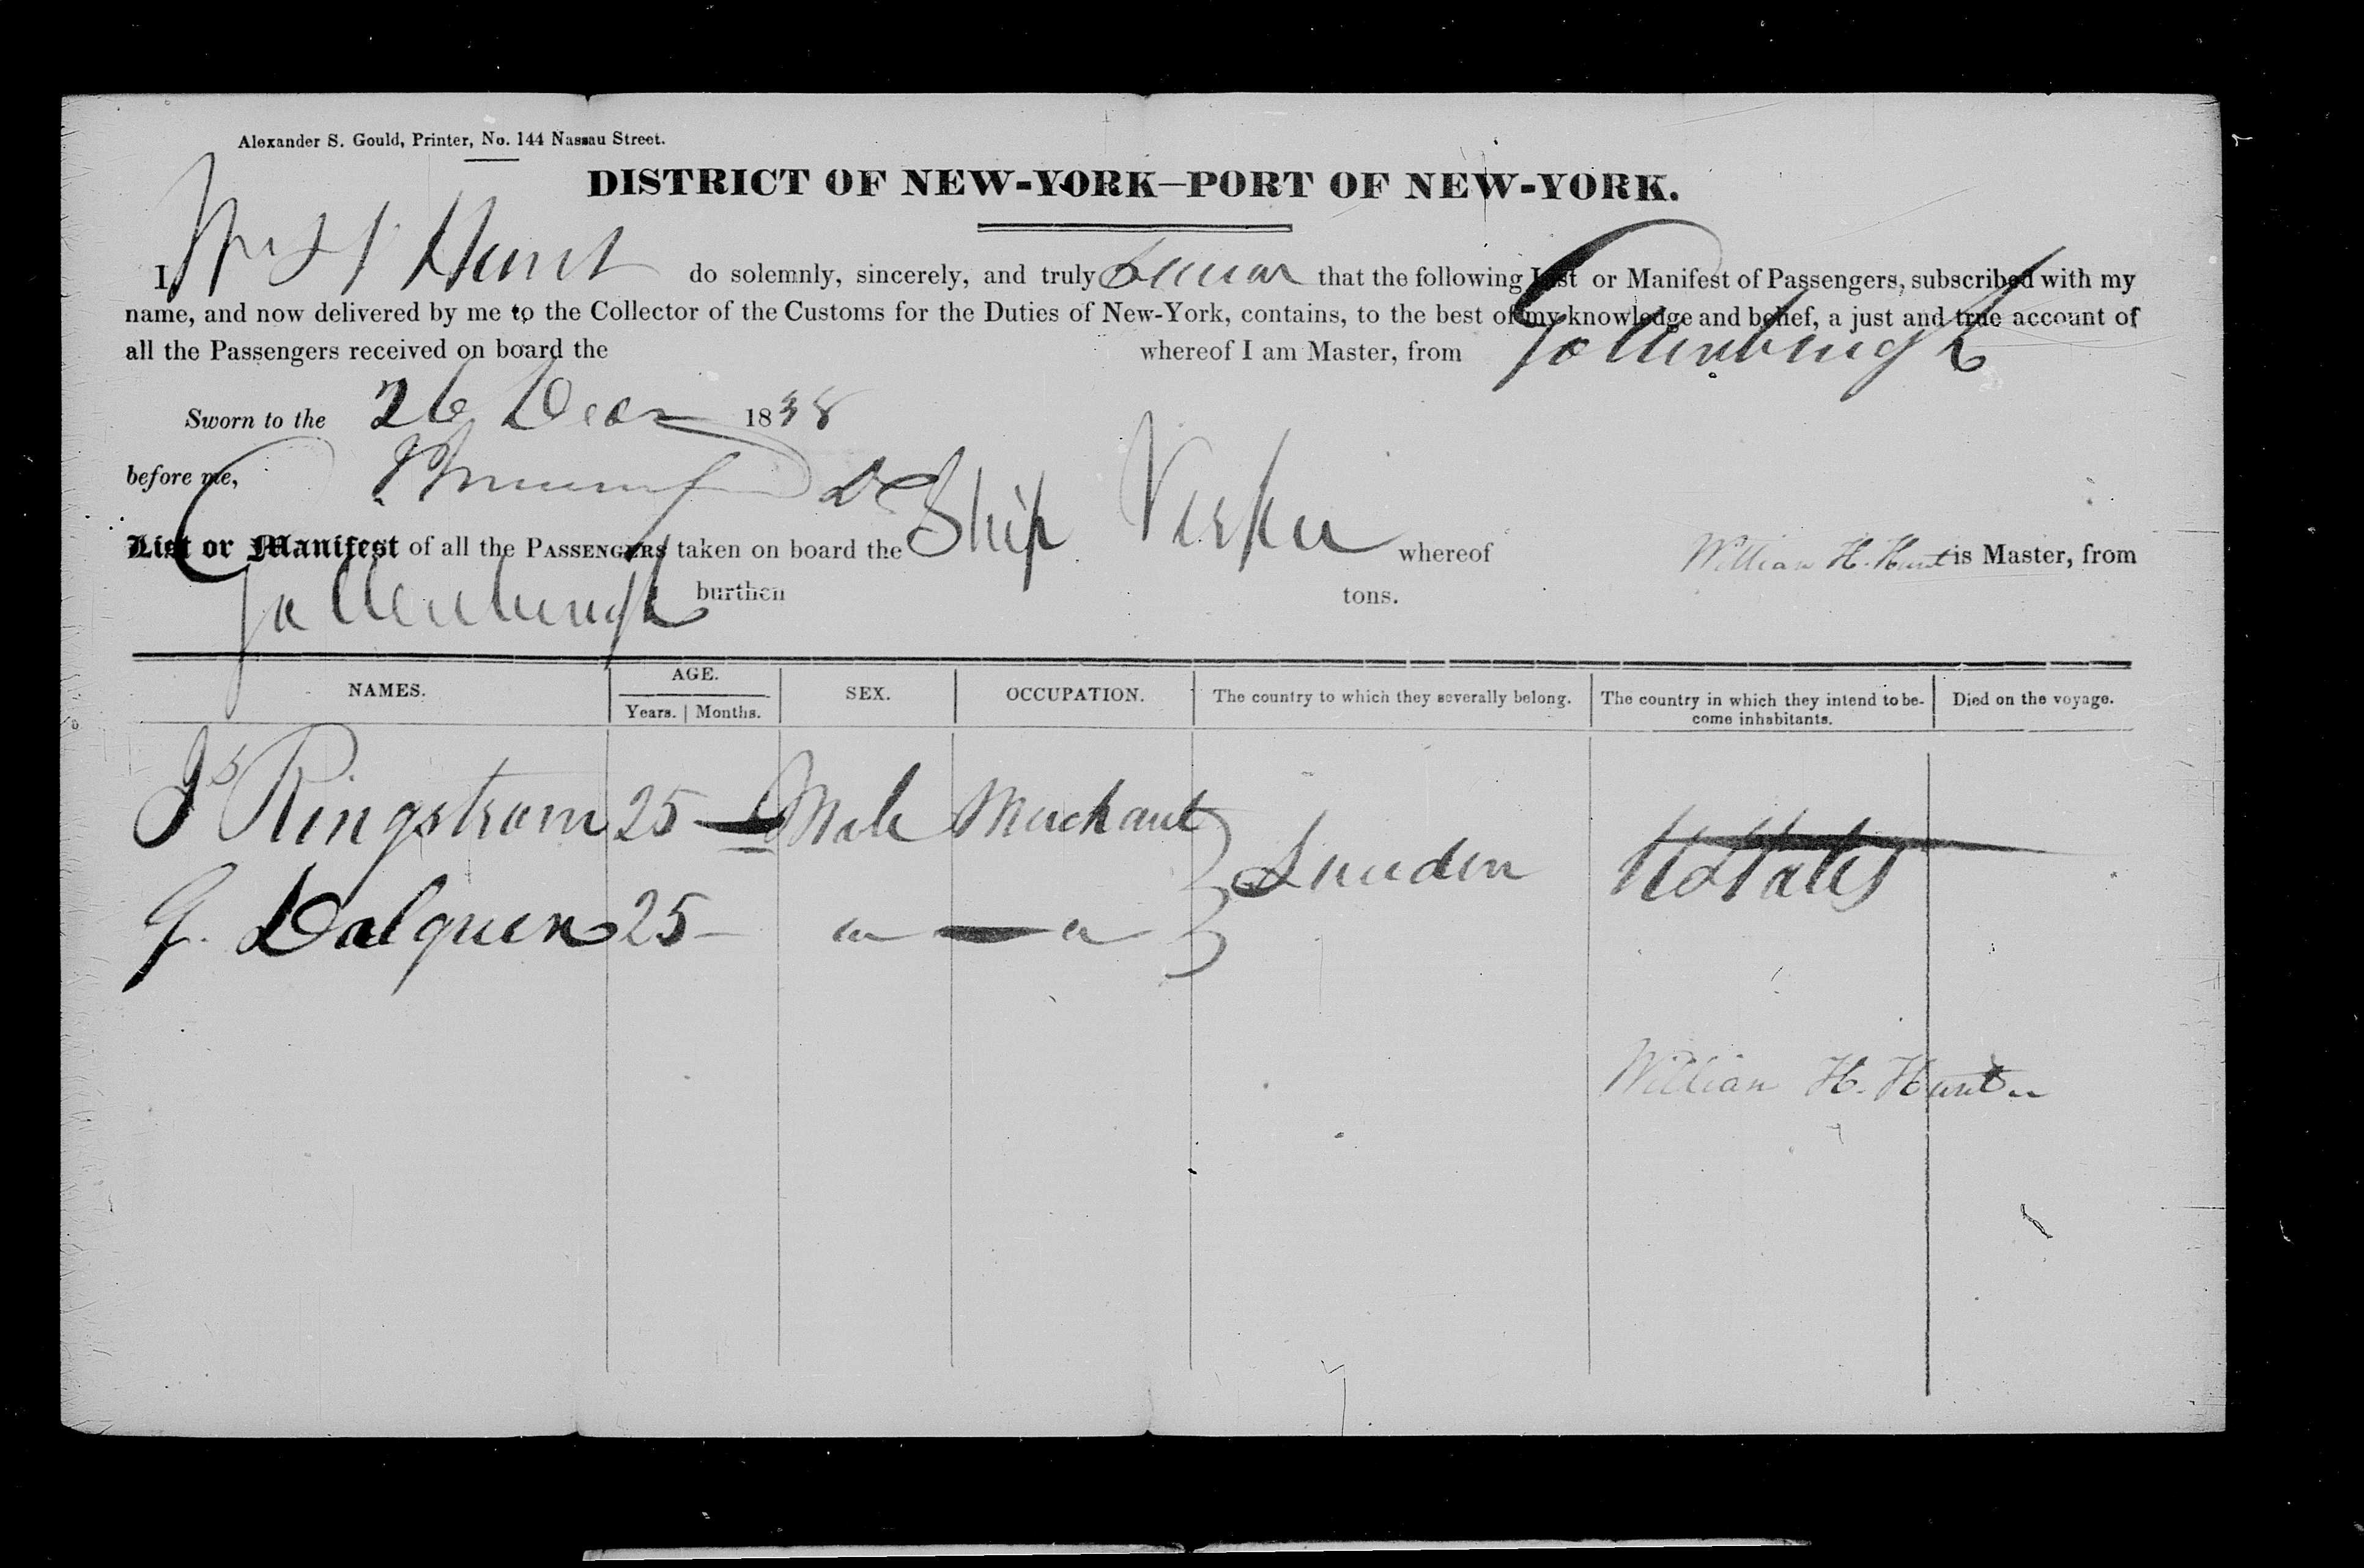 Alexander S. Gould, Printer, No. 144 Nassau Street.
DISTRICT OF NEW-YORK—PORT OF NEW-YORK.
I, Wm H Hunt do solemnly, sincerely, and truly Swear that the following List or Manifest of Passengers, subscribed with my
name, and now delivered by me to the Collector of the Customs for the Duties of New-York, contains, to the best of my knowledge and belief, a just and true account of
all the Passengers received on board the whereof I am Master, from Gottenburgh
Sworn to the 26 Decr 1838
before me, DC
List or Manifest of all the PASSENGERS taken on board the Ship whereof William H. Hunt is Master, from
Gottenburgh burthen tons.
NAMES. AGE. SEX. OCCUPATION. The country to which they severally belong. The country in which they intend to be- Died on the voyage.
Years. Months. come inhabitants.
Js Ringstrom 25 — Male Merchant
Sweden UStates
G. Dalquen 25 — " — "
William H. Hunt